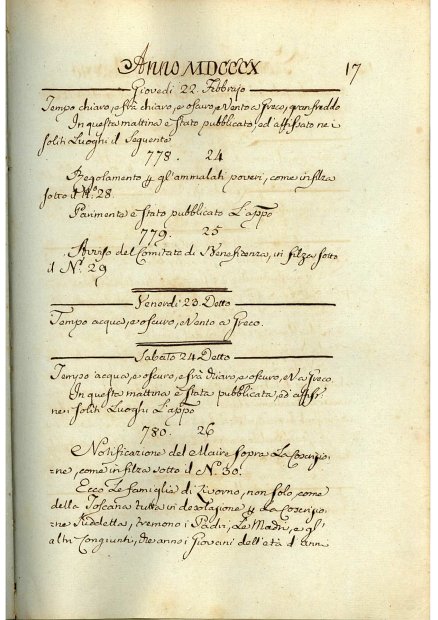 Anno MDCCCX 17
Giovedi 22. Febbrajo
Tempo chiaro, e frà chiaro, e oscuro, e Vento a Greco, gran freddo
In questa mattina è stato pubblicato, ed affissato nei
soliti Luoghi il Seguente
778. 24
Regolamento p gl'ammalati poveri, come in filza
sotto il N.º 28.
Parimente è stato pubblicato L'appo
779. 25
Avviso del Comitato di Beneficenza, in filza sotto
il N.º 29
Venerdi 23. Detto
Tempo acqua, e oscuro, e Vento a Greco.
Sabato 24 Detto
Tempo acqua, e oscuro, e frà chiaro, e oscuro, e V. a Greco
In questa mattina è stata pubblicata, ed affiss:
nei soliti Luoghi L'appo
780. 26
Notificazione del Maire sopra La Coscrizio-
ne, come in filza sotto il N.º 30.
Ecco Le famiglie di Livorno, non solo, come
della Toscana tutta in desolazione p La Coscrizio-
ne Suddetta, tremono i Padri, Le Madri, e gl'
altri Congiunti, che anno i Giovini dell'età d'anni